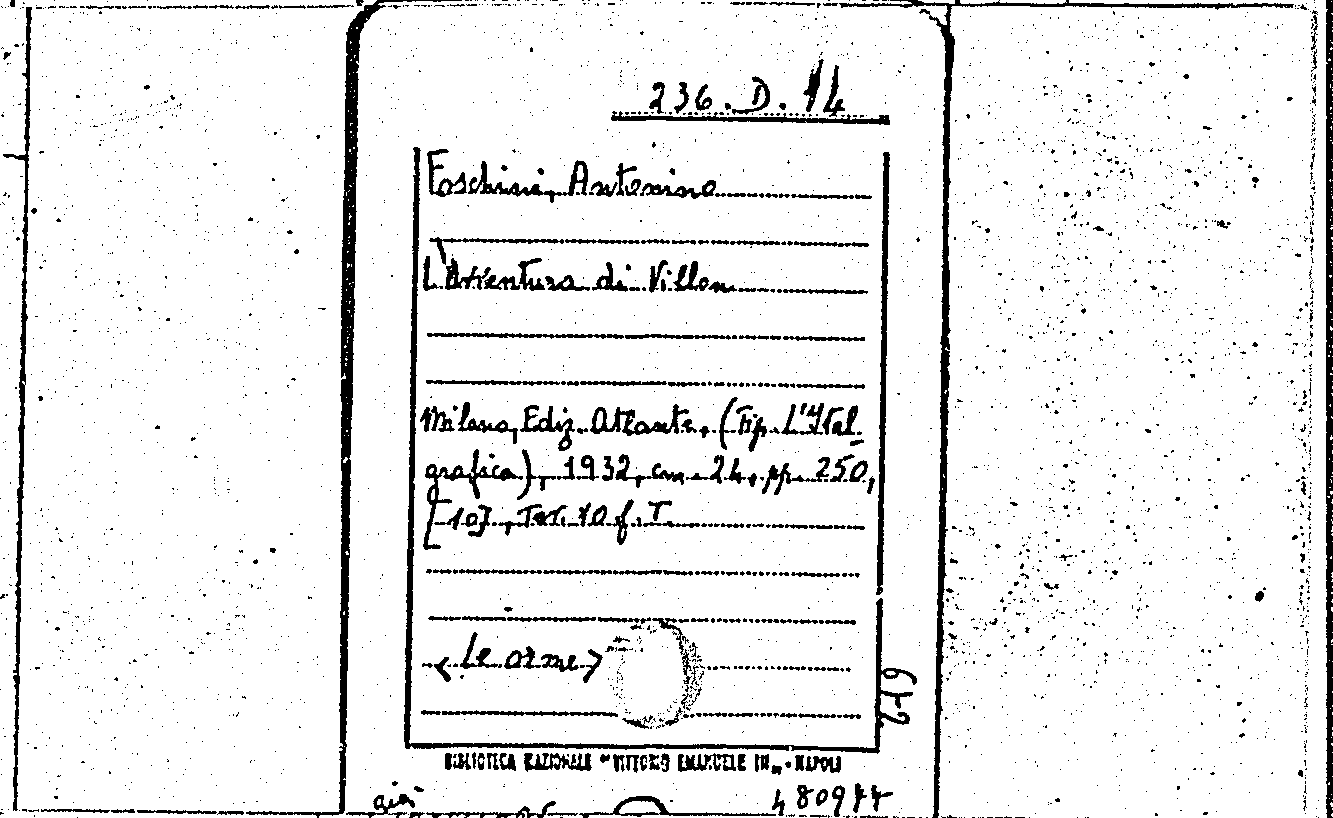 236.D.14
Foschini, Antonino
L'Avventura di Villon
Milano, Ediz. Atlante, (Tip. L'Ital
grafica), 1932, cm. 24, pp. 250,
[10], Tav. 10 f. T.
<Le orme>
619
BIBLIOTECA NAZIONALE "VITTORIO EMANUELE III„ - NAPOLI
già
480977